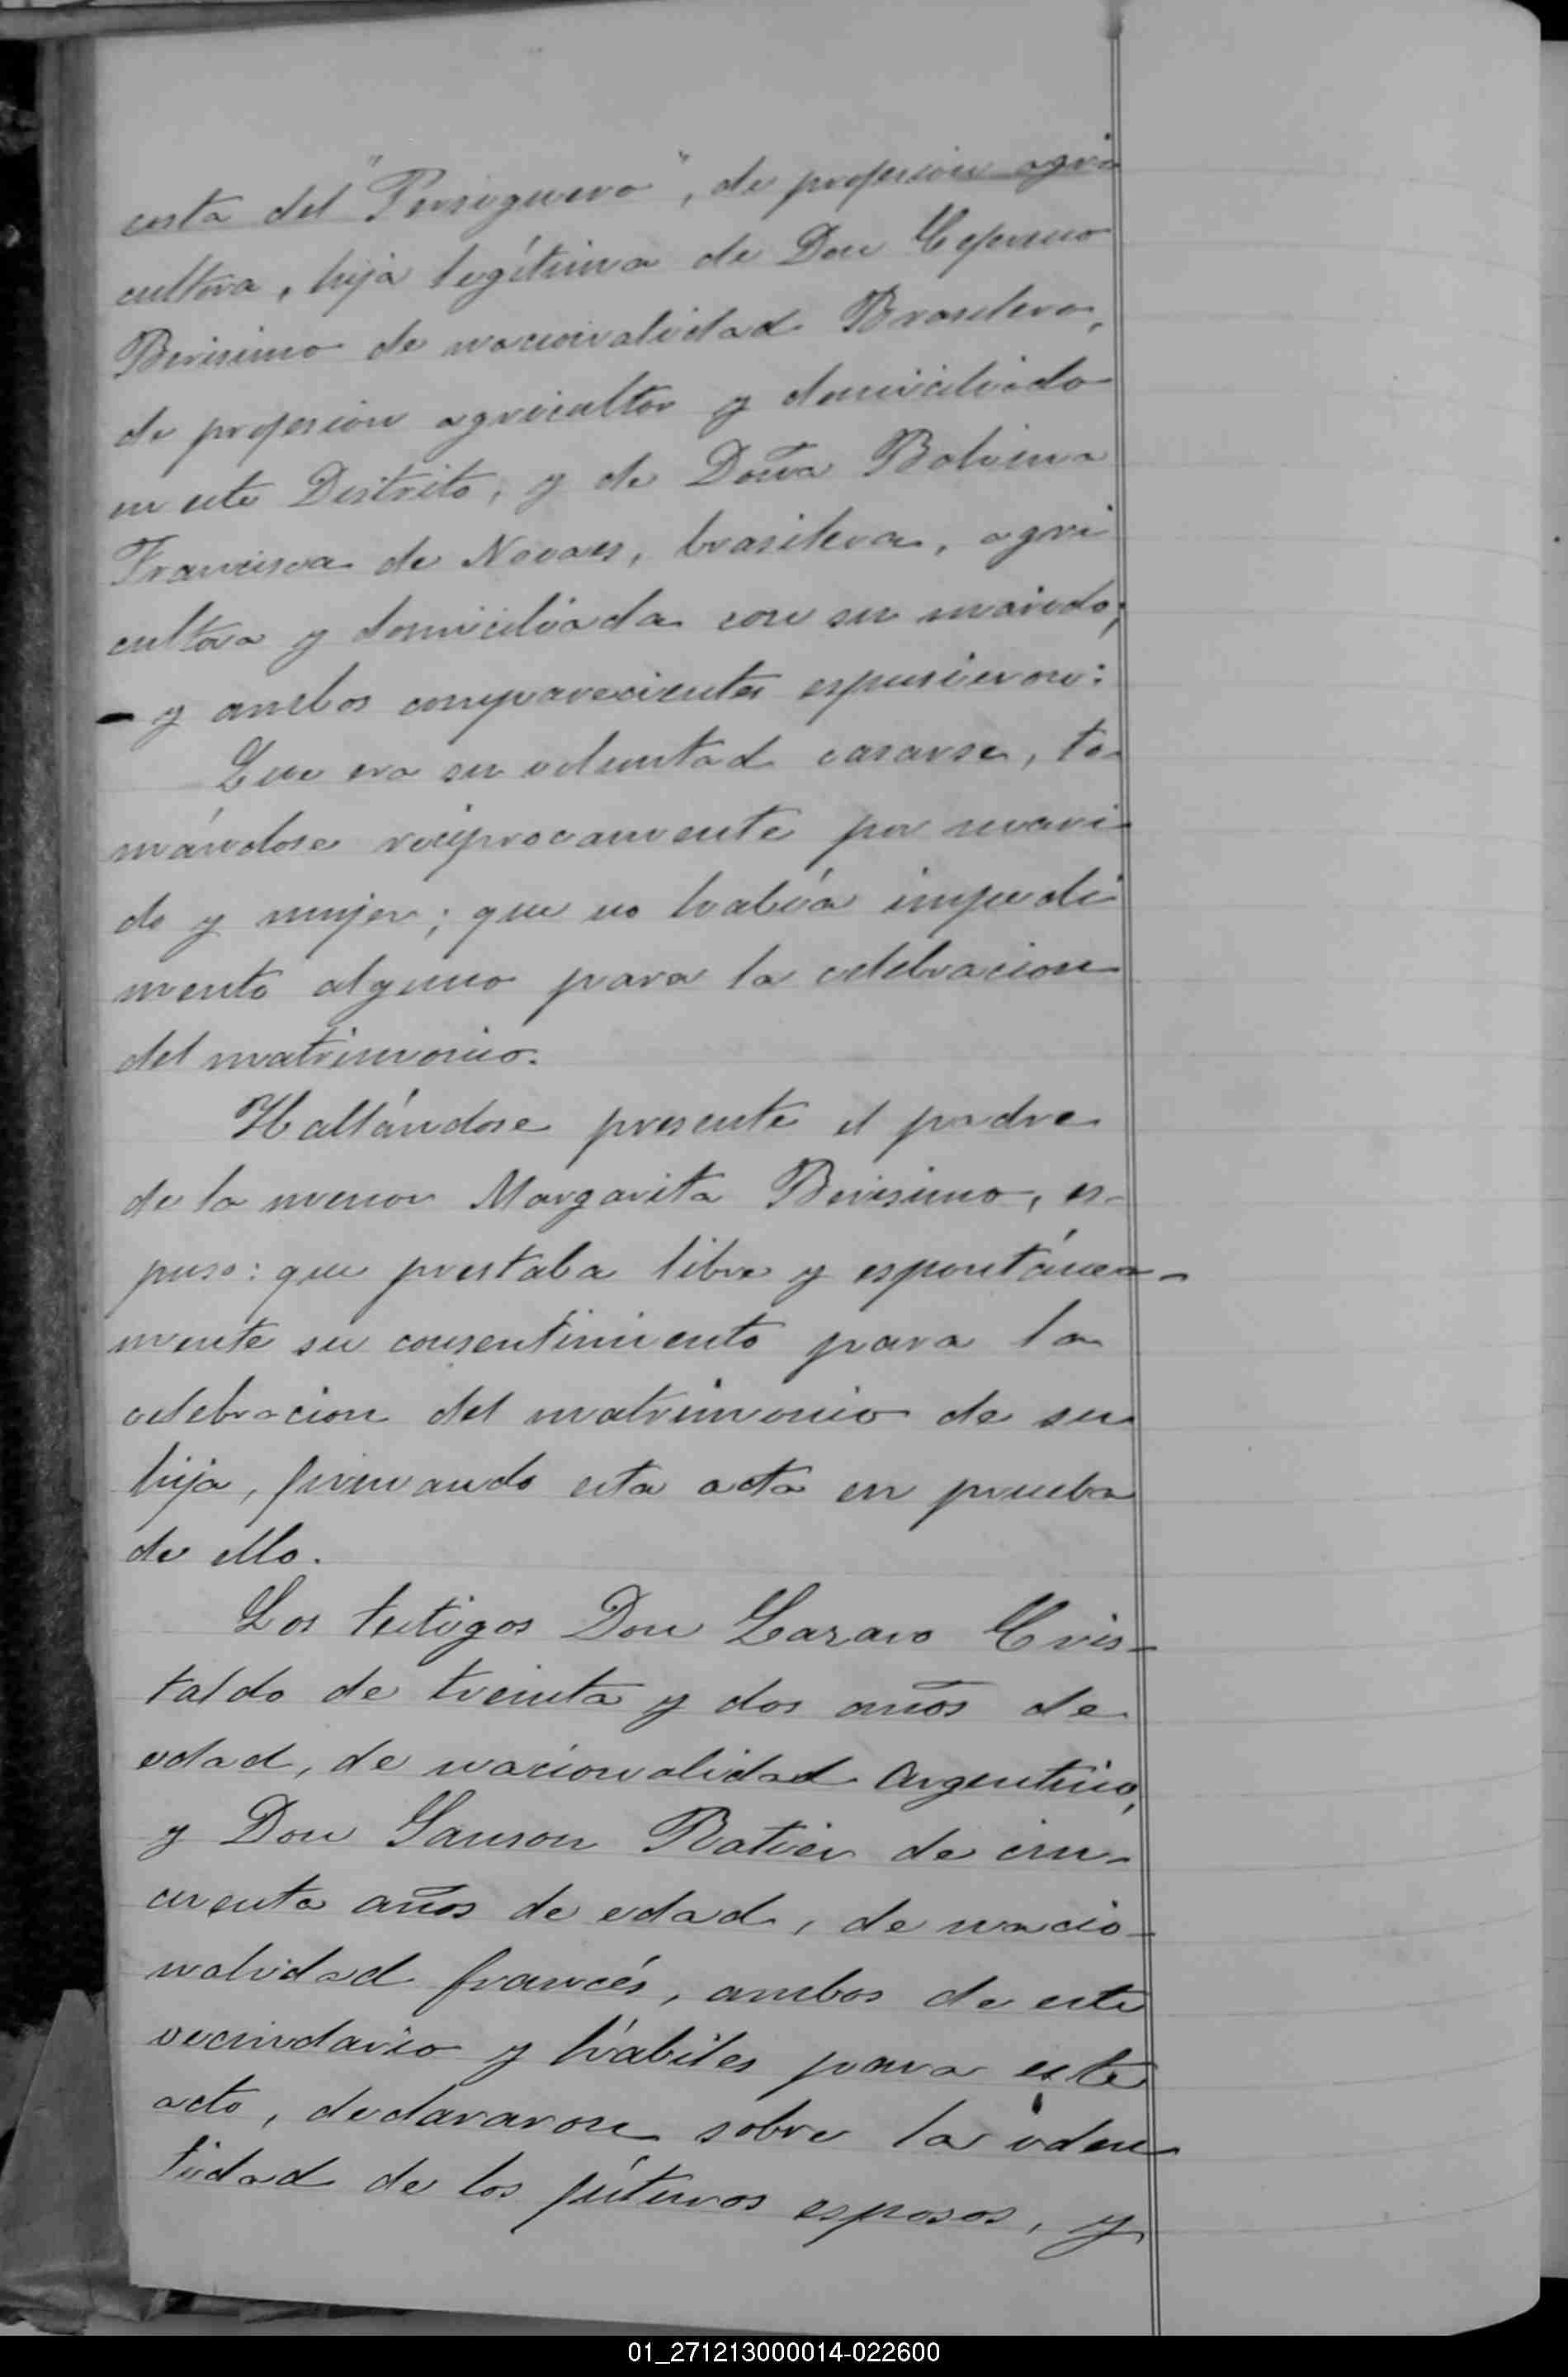 costa del "Persiguero", de profesion agri
cultora, hija legítima de Don Ceferino
Berisimo de nacionalidad Brasilero,
de profesion agricultor y domiciliado
en este Distrito, y de Doña Bolivina
Francisca de Novaes, brasilera, agri
cultora y domiciliada con su marido;
- y ambos comparecientes espusieron:
Que era su voluntad casarse, to-
mándose reciprocamente por mari-
do y mujer; que no había impedi
mento alguno para la celebracion
del matrimonio.
Hallándose presente el padre
de la menor Margarita Berisimo, es-
puso: que prestaba libre y espontánea-
mente su consentimiento para la
celebracion del matrimonio de su
hija, firmando esta acta en prueba
de ello.
Los testigos Don Lazaro Cris-
taldo de treinta y dos años de
edad, de nacionalidad Argentino,
y Don Sanson Ratier de cin-
cuenta años de edad, de nacio-
nalidad francés, ambos de este
vecindario y hábiles para este
acto, declararon sobre la iden
tidad de los fúturos esposos, y
01_271213000014-022600